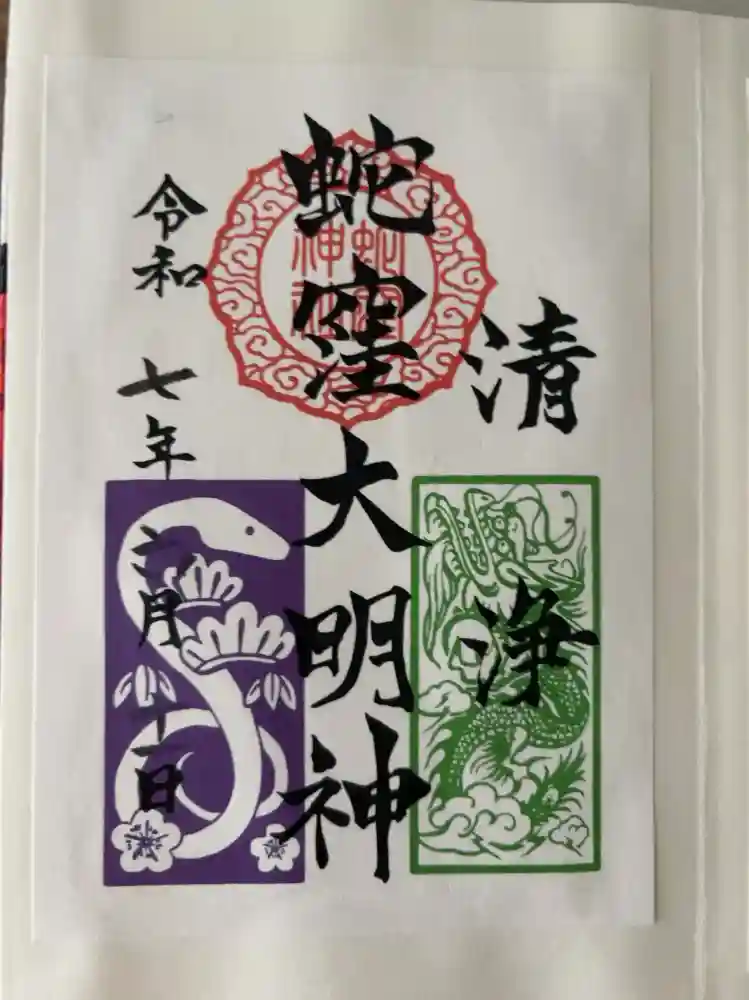 清浄
蛇窪大明神
蛇窪神社
令和七年六月十一日